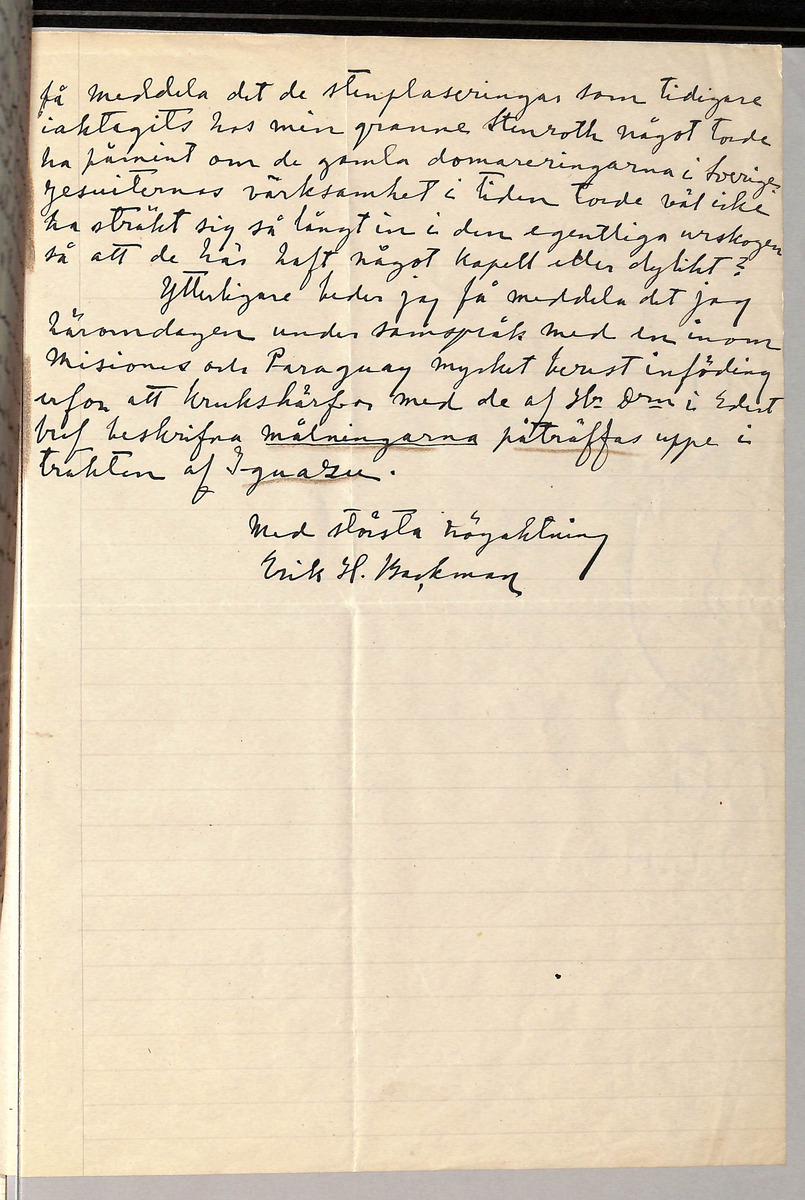 få meddela det de stenplaseringar som tidigare
iakttagits hos min granne Stenroth något torde
ha påmint om de gamla domareringarna i Sverige.
yesuiternas värksamhet i tiden torde väl icke
ha sträkt sig så långt in i den egentliga urskogen
så att de här haft något kapell eller dylikt?
Ytterligare beder jag få meddela det jag
häromdagen under samspråk med en inom
Misiones och Paraguay mycket berest inföding
erfor att krukskärfvor med de af Hr Drn i Edert
bref beskrifna målningarna påträffas uppe i
trakten af Iguazu.
Med största högaktning
Erik H. Backman